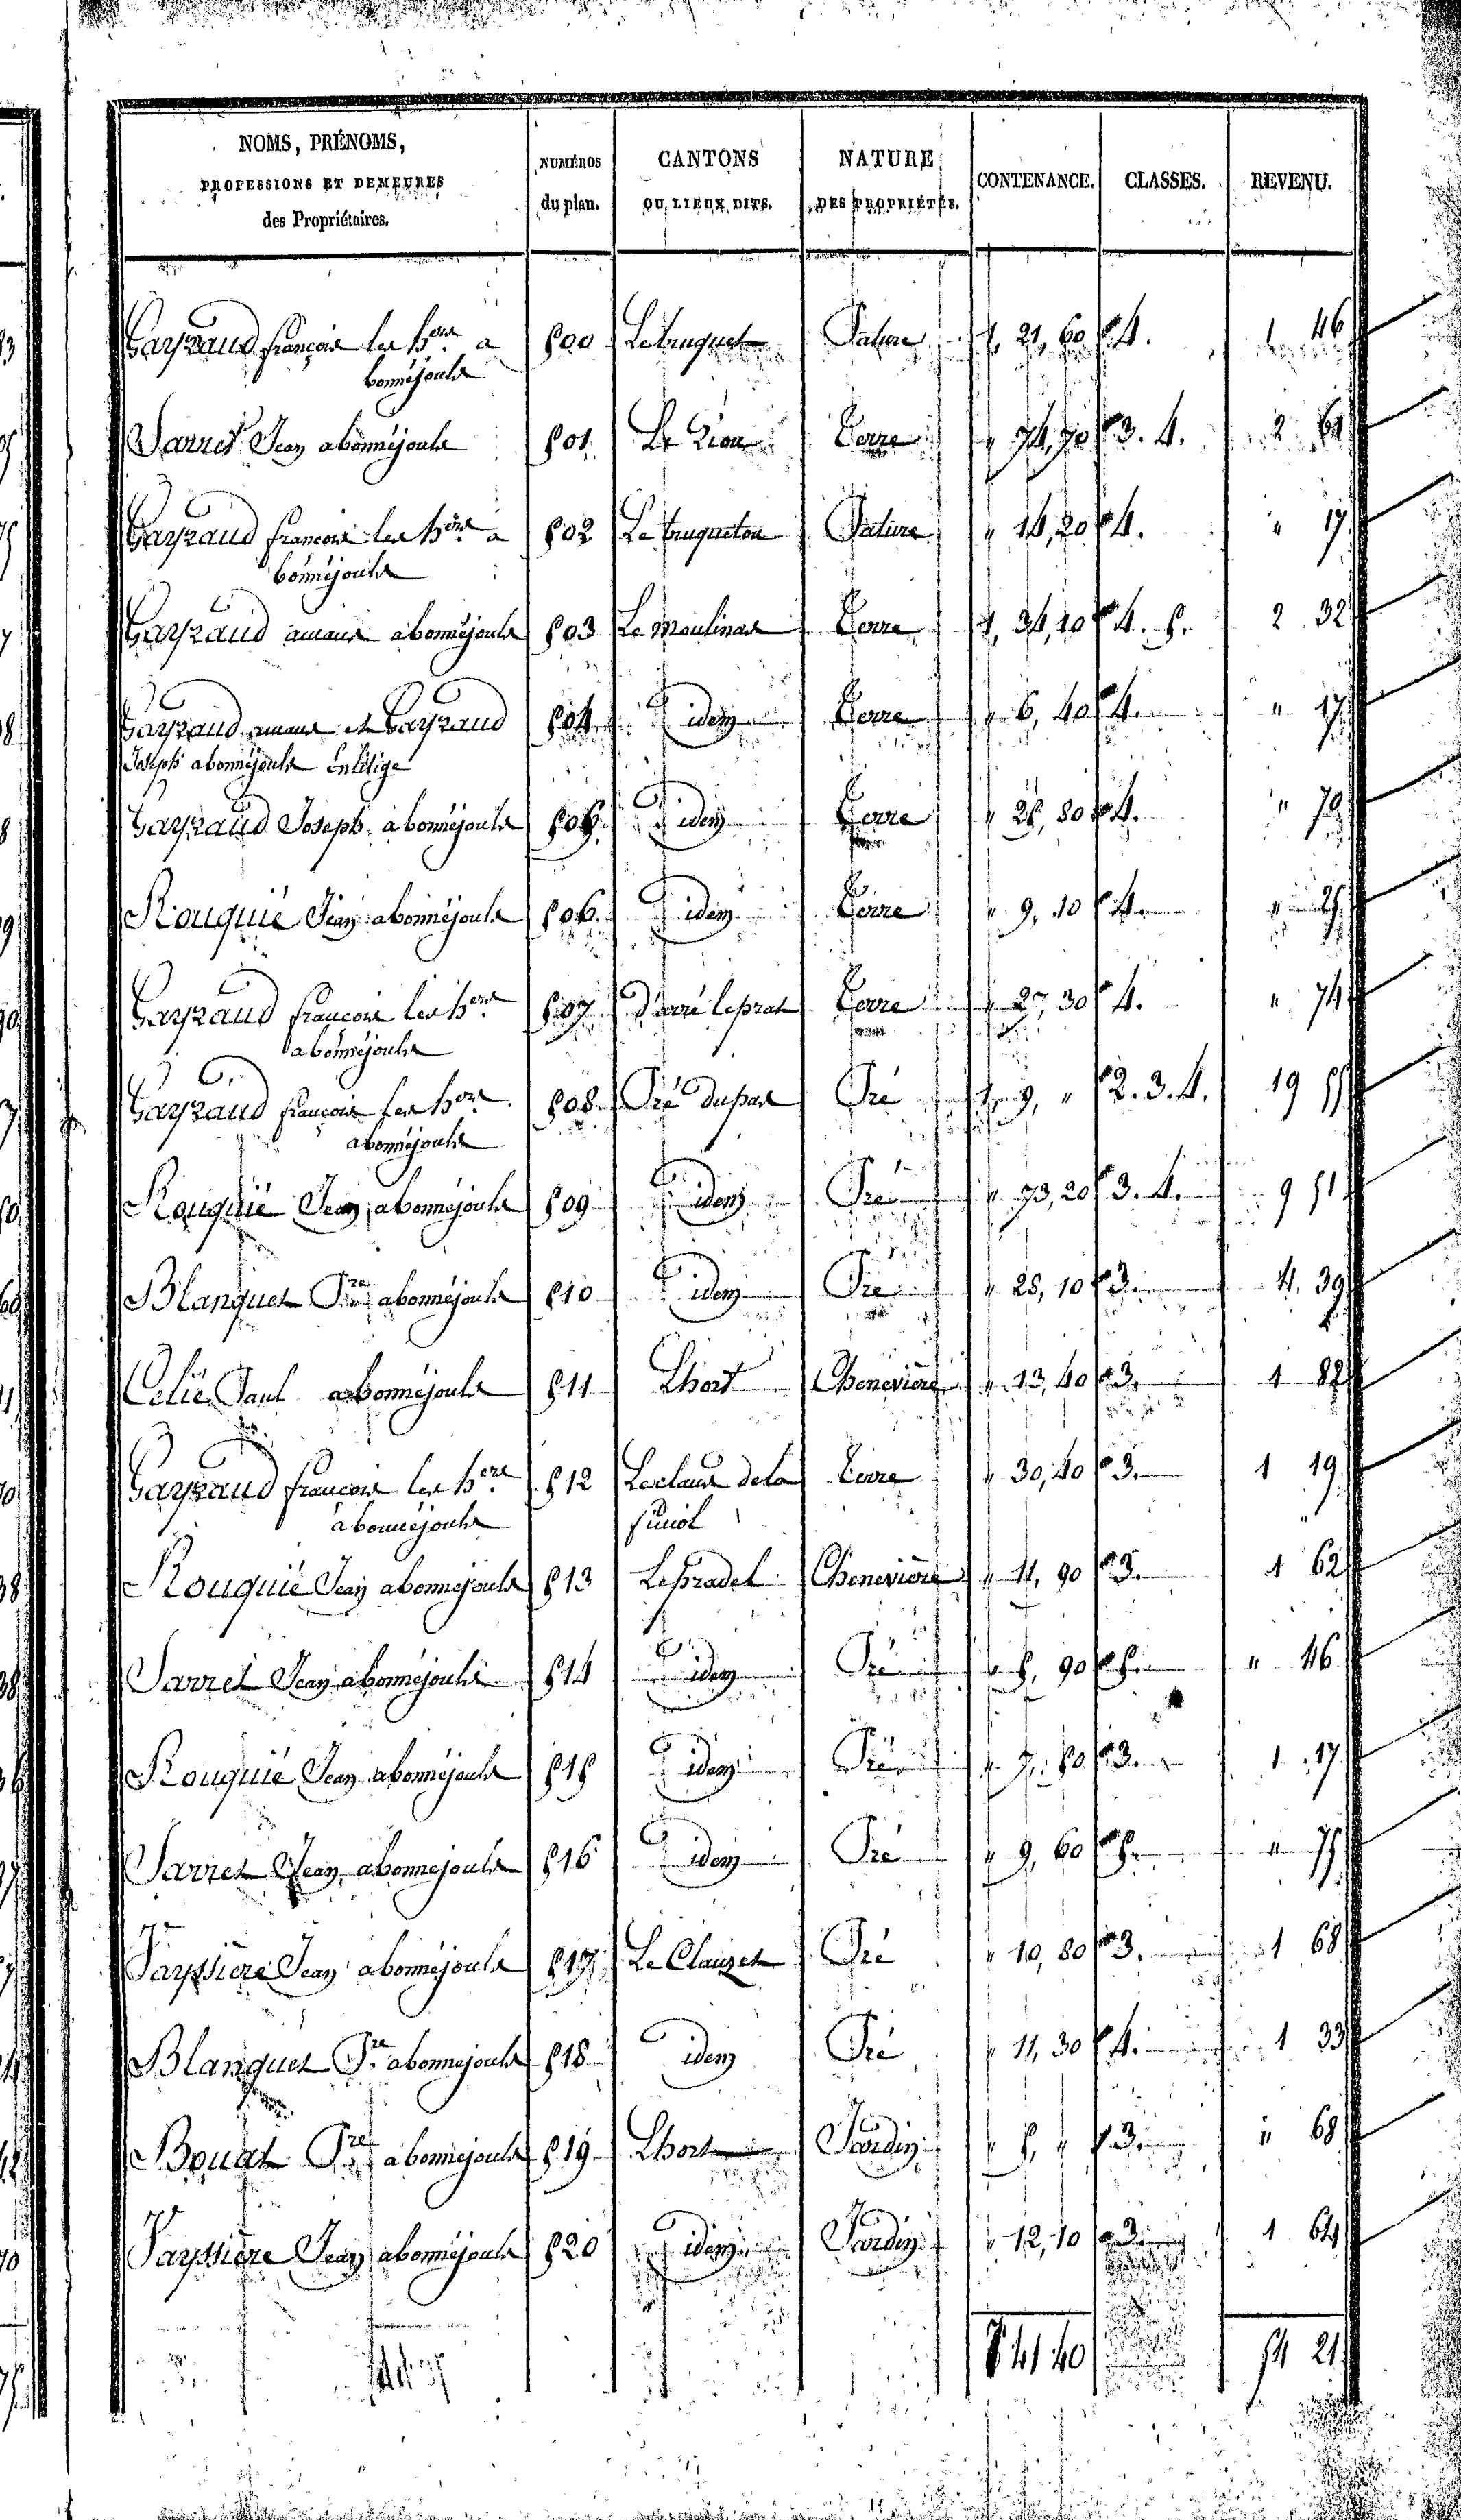 NOMS, PRÉNOMS,
PROFESSIONS ET DEMEURES
des Propriétaires.
NUMÉROS
du plan.
CANTONS
OU LIEUX DITS.
NATURE
DES PROPRIÉTÉS.
CONTENANCE.
CLASSES.
REVENU.
Gayraud françois les hers a 500 Le truquet Pature 1, 21, 60 4. 1 46
bonnéjouls
Sarret Jean a bonnéjouls 501 Le Terre " 74, 70 3. 4. 2 61
Gayraud francois les hers a 502 Le truqueton Pature " 14, 20 4. " 17
bonnéjouls
Gayraud amans a bonnéjouls 503 Le moulinas Terre 1, 34, 10 4. 5. 2 32
Gayraud amans et Gayraud 504 idem Terre " 6, 40 4. " 17
Joseph a bonnéjouls en litige
Gayraud Joseph a bonnéjouls 505 idem Terre " 28, 80 4. " 78
Rouquié Jean a bonnéjouls 506 idem Terre " 9, 10 4. " 25
Gayraud francois les hers 507 leprat Terre " 27, 30 4. " 74
a bonnéjouls
Gayraud françois les hers 508 Pré dupas Pré 1, 9, " 2. 3. 4. 19 55
a bonnéjouls
Rouquié Jean a bonnéjouls 509 idem Pré " 73, 20 3. 4. 9 51
Blanquet Pre a bonnéjouls 510 idem Pré " 28, 10 3. 4 39
Celié Paul a bonnéjouls 511 Lhort Chenevière " 13, 40 3. 1 82
Gayraud francois les hers 512 Leclaus dela Terre " 30, 40 3. 1 19
a bonnéjouls
Rouquié Jean a bonnejouls 513 Lepradel Chenevière " 11, 90 3. 1 62
Sarret Jean a bonnéjouls 514 idem Pré " 5, 90 5. " 46
Rouquié Jean a bonnéjouls 515 idem Pré " 7, 50 3. 1 17
Sarret Jean a bonnejouls 516 idem Pré " 9, 60 5. " 75
Vayssière Jean a bonnéjouls 517 Le Clauzet Pré " 10, 80 3. 1 68
Blanquet Pre a bonnejouls 518 idem Pré " 11, 30 4. 1 33
Bouat Pre a bonnejouls 519 Lhort Jardin " 5, " 3. " 68
Vayssière Jean a bonnejouls 520 idem Jardin " 12, 10 3. 1 64
8 41 40 54 21